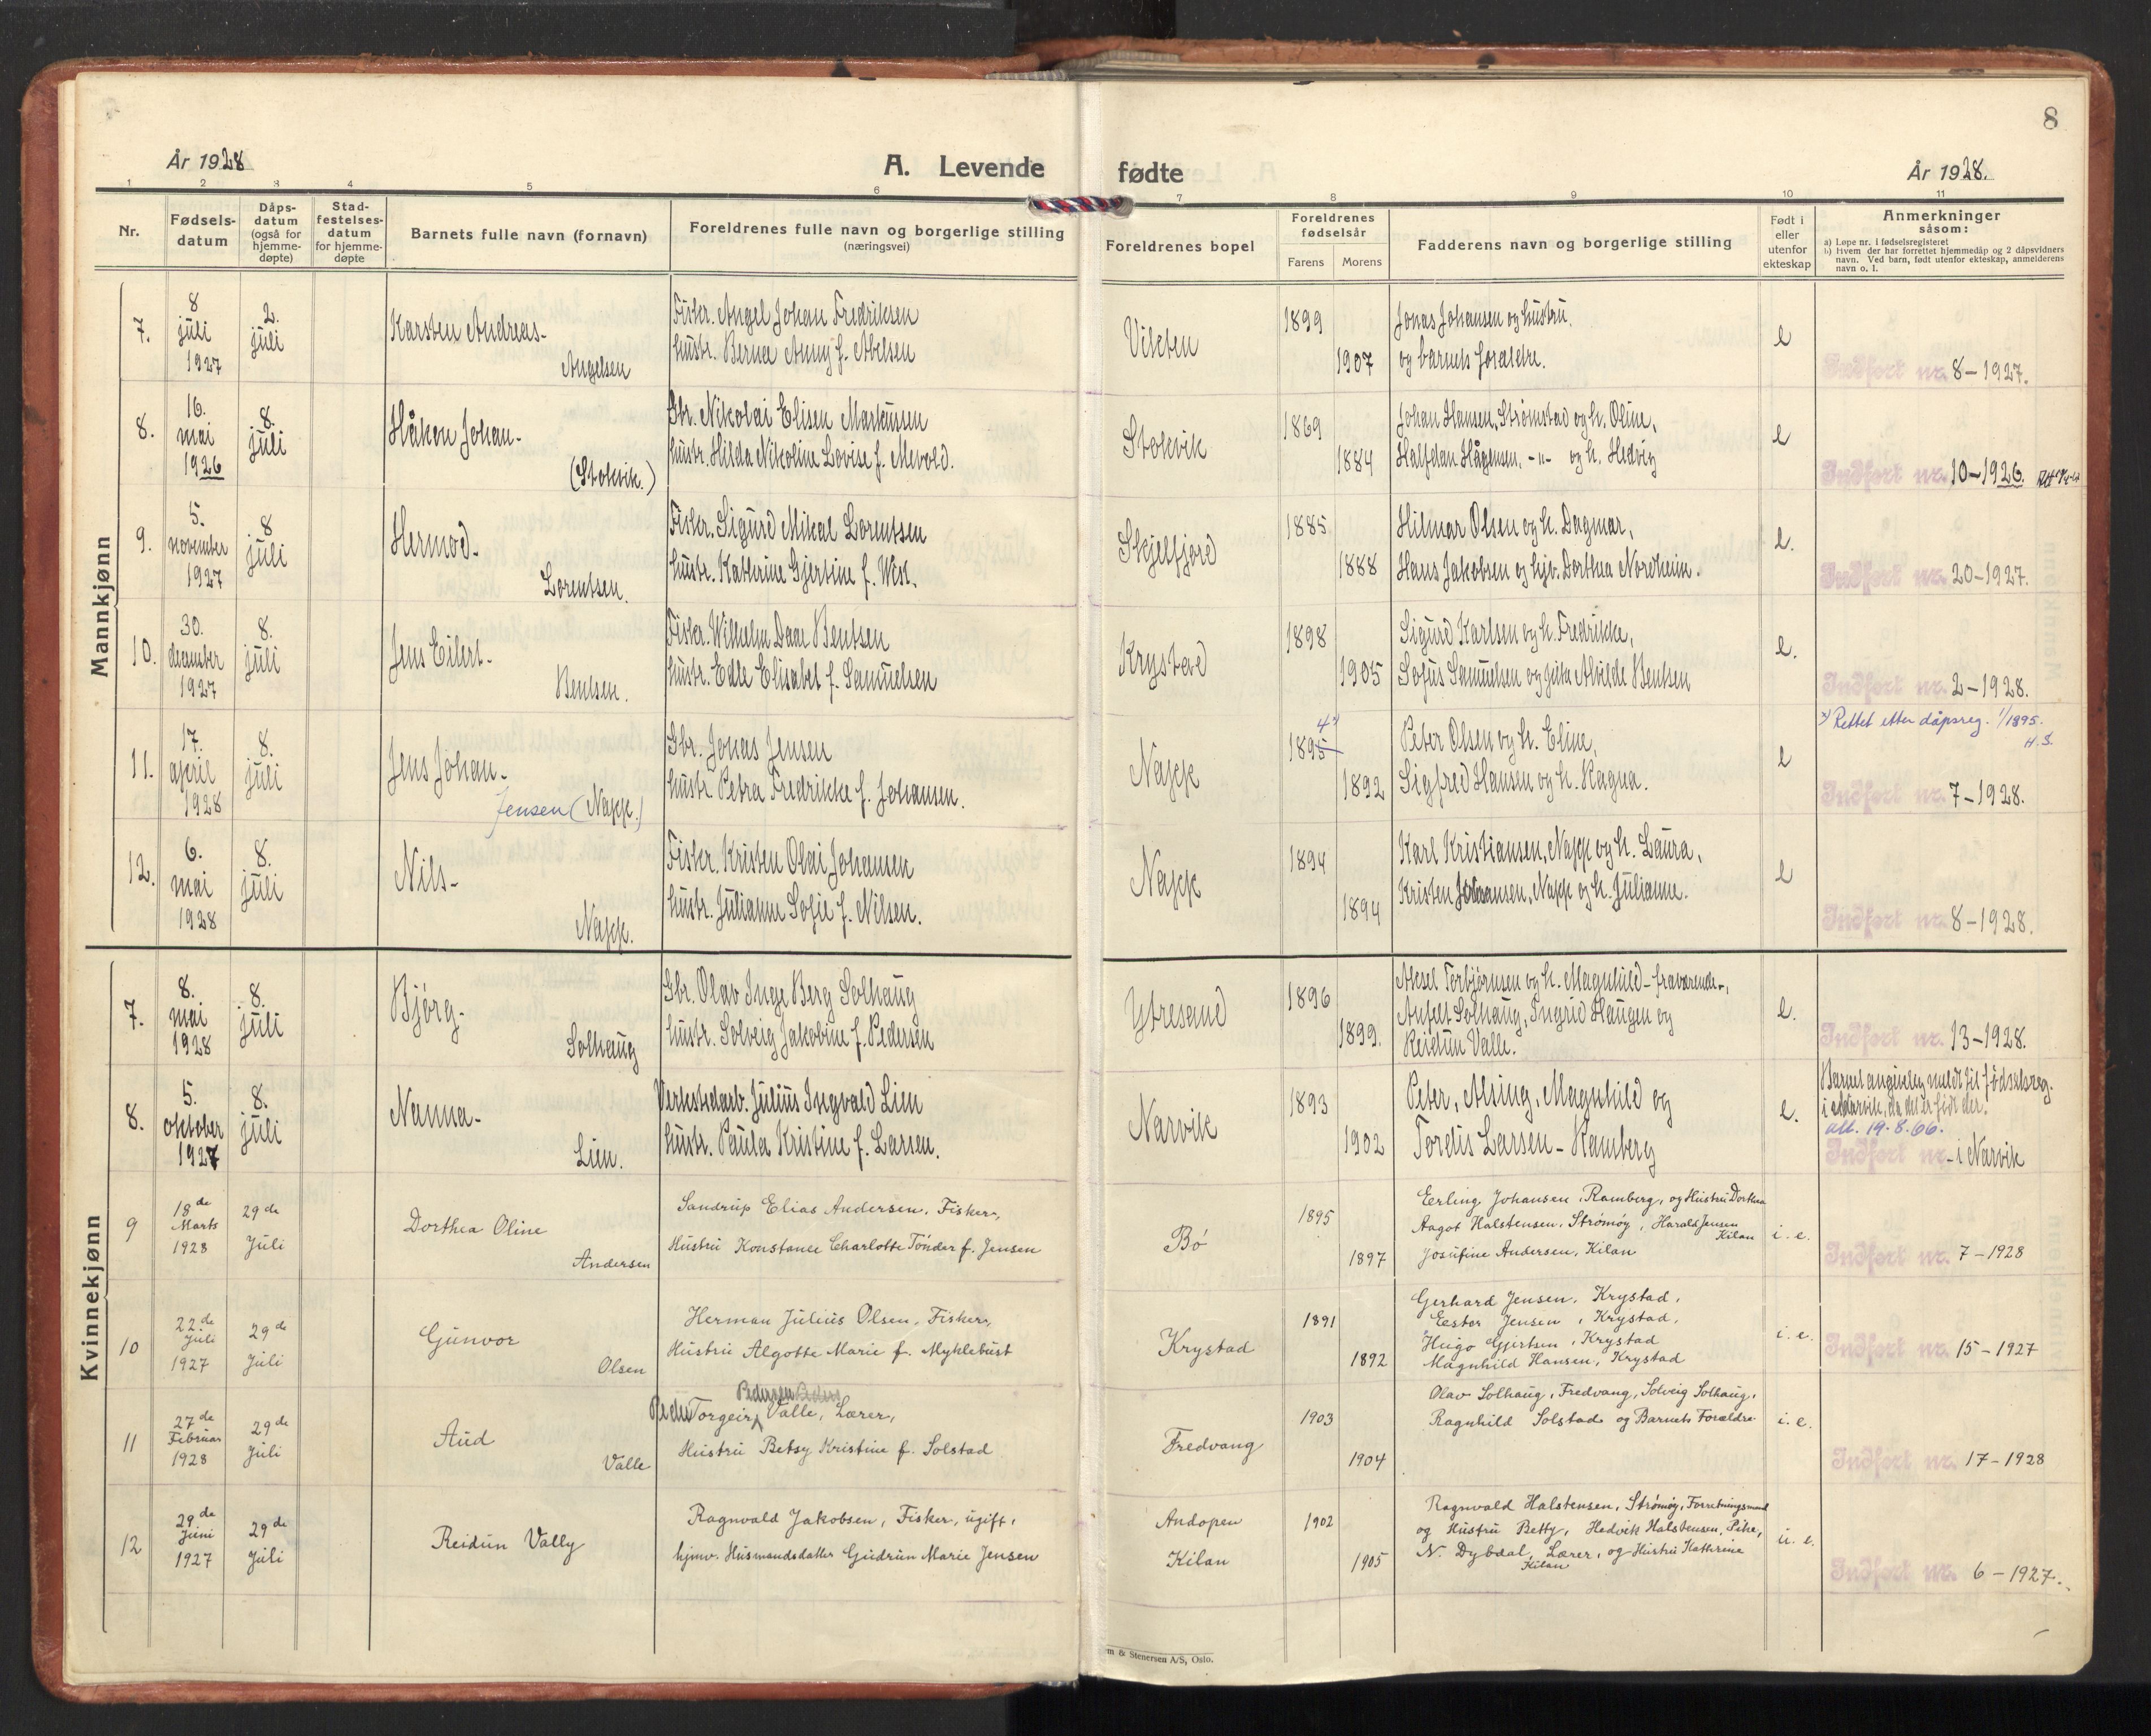 8
År 1928
A. Levende
fødte
År 1928.
1 2 3 4 5 6 7 8 9 10 11
Nr.
Fødsels-
datum
Dåps-
datum
(også for
hjemme-
døpte)
Stad-
festelses-
datum
for hjemme-
døpte
Barnets fulle navn (fornavn)
Foreldrenes fulle navn og borgerlige stilling
(næringsvei)
Foreldrenes bopel
Foreldrenes
fødselsår
Farens
Morens
Fadderens navn og borgerlige stilling
Født i
eller
utenfor
ekteskap
Anmerkninger
såsom:
a) Løpe nr. i fødselsregisteret
b) Hvem der har forrettet hjemmedåp og 2 dåpsvidners
navn. Ved barn, født utenfor ekteskap, anmelderens
navn o. l.
Mannkjønn
7.
8
juli
1927
2.
juli
Karsten Andreas-
Angelsen
Fisker. Angel Johan Fredriksen
hustr. Berna Anny f. Abelsen
Vikten
1899
1907
Jonas Johansen og hustru,
og barnets foreldre.
e
Indført nr. 8-1927.
8.
16.
mai
1926
8.
juli
Håkon Johan-
(Stokvik.)
Gbr. Nikolai Elisen Markussen
hustr. Hilda Nikoline Lovise f. Mevold.
Stokvik
1869
1884
Johan Hansen, Strømstad og h. Oline,
Halfdan Hågensen, -"- og h. Hedvig
e
Indført nr. 10-1926.
9.
5.
november
1927
8
juli
Hermod-
Lorentsen.
Fisker. Sigurd Mikal Lorentsen
hustr. Kathrine Gjertine f. Wik.
Skjelfjord
1885
1888
Hilmar Olsen og h. Dagmar,
Hans Jakobsen og hjv. Dorthea Nordheim.
e.
Indført nr. 20-1927.
10.
30.
desember
1927
8.
juli
Jens Eilert-
Bentsen.
Fisker. Wilhelm Daae Bentsen
hustr. Edle Elisabet f. Samuelsen
Krystad
1898
1905
Sigurd Karlsen og h. Fredrikke,
Sofus Samuelsen og pike Alvilde Bentsen
e.
Indført nr. 2-1928.
11.
17.
april
1928
8.
juli
Jens Johan-
Jensen (Napp.)
Gbr. Jonas Jensen
hustr. Petra Fredrikke f. Johansen.
Napp
4x)
1895
1892
Peter Olsen og h. Eline,
Sigfred Hansen og h. Ragna.
e
x) Rettet etter dåpsreg. 1/1895.
H.S.
Indført nr. 7-1928.
12.
6.
mai
1928
8.
juli
Nils-
Napp.
Fisker. Kristen Olai Johansen
hustr. Julianne Sofie f. Nilsen.
Napp
1894
1894
Karl Kristiansen, Napp og h. Laura,
Kristen Johansen, Napp og h. Julianne.
e
Indført nr. 8-1928.
Kvinnekjønn
7.
8.
mai
1928
8.
juli
Bjørg-
Solhaug
Gbr. Olav Inge Berg Solhaug
hustr. Solveig Jakobine f. Pedersen
Ytresand
1896
1899.
Aksel Torbjørnsen og h. Magnhild - fraværende-,
Anfelt Solhaug, Ingrid Haugen og
Reidun Valle.
e.
Indført nr. 13-1928.
8.
5.
oktober
1927
8.
juli
Nanna-
Lien.
Verkstedarb. Julius Ingvald Lien
hustr. Paula Kristine f. Larsen.
Narvik
1893
1902
Peter, Alsing, Magnhild og
Tordis Larsen - Ramberg
e.
Barnet angivelig meldt til fødselsreg.
i Narvik, da det er født der.
att. 19.8.66.
Indført nr. - i Narvik
9
18de
Marts
1928
29de
Juli
Dorthea Oline
Andersen
Sandrup Elias Andersen, Fisker,
Hustru Konstance Charlotte Tønder f. Jensen
Bø
1895
1897
Eerling Johansen, Ramberg, og Hustru Dorthea
Aagot Halstensen, Strømøy, Harald Jensen
Kilan
Josefine Andersen, Kilan
i. e.
Indført nr. 7-1928
10
22de
Juli
1927
29de
Juli
Gunvor
Olsen
Herman Julius Olsen, Fisker,
Hustru Algotte Marie f. Myklebust
Krystad
1891
1892
Gerhard Jensen, Krystad,
Eester Jensen, Krystad,
Hugo Gjertsen, Krystad
Magnhild Hansen, Krystad
i. e.
Indført nr. 15-1927
11
27de
Februar
1928
29de
Juli
Aud
Valle
Pedersen
Peder Torgeir Valle, Lærer,
Hustru Betsy Kristine f. Solstad
Fredvang
1903
1904
Olav Solhaug, Fredvang, Solveig Solhaug,
Ragnhild Solstad og Barnets Forældre
i. e.
Indført nr. 17-1928
12
29de
Juni
1927
29de
Juli
Reidun Vally
Ragnvald Jakobsen, Fisker, ugift,
hjmv. Husmandsdatter Gudrun Marie Jensen
Andopen
Kilan
1902
1905
Ragnvald Halstensen, Strømøy, Forretningsmand
og Hustru Betty, Hedvik Halstensen, Pike,
N. Dybdal, Lærer, og Hustru Kathrine
Kilan
u. e.
Indført nr. 6-1927.
m & Stenersen A/S, Oslo.